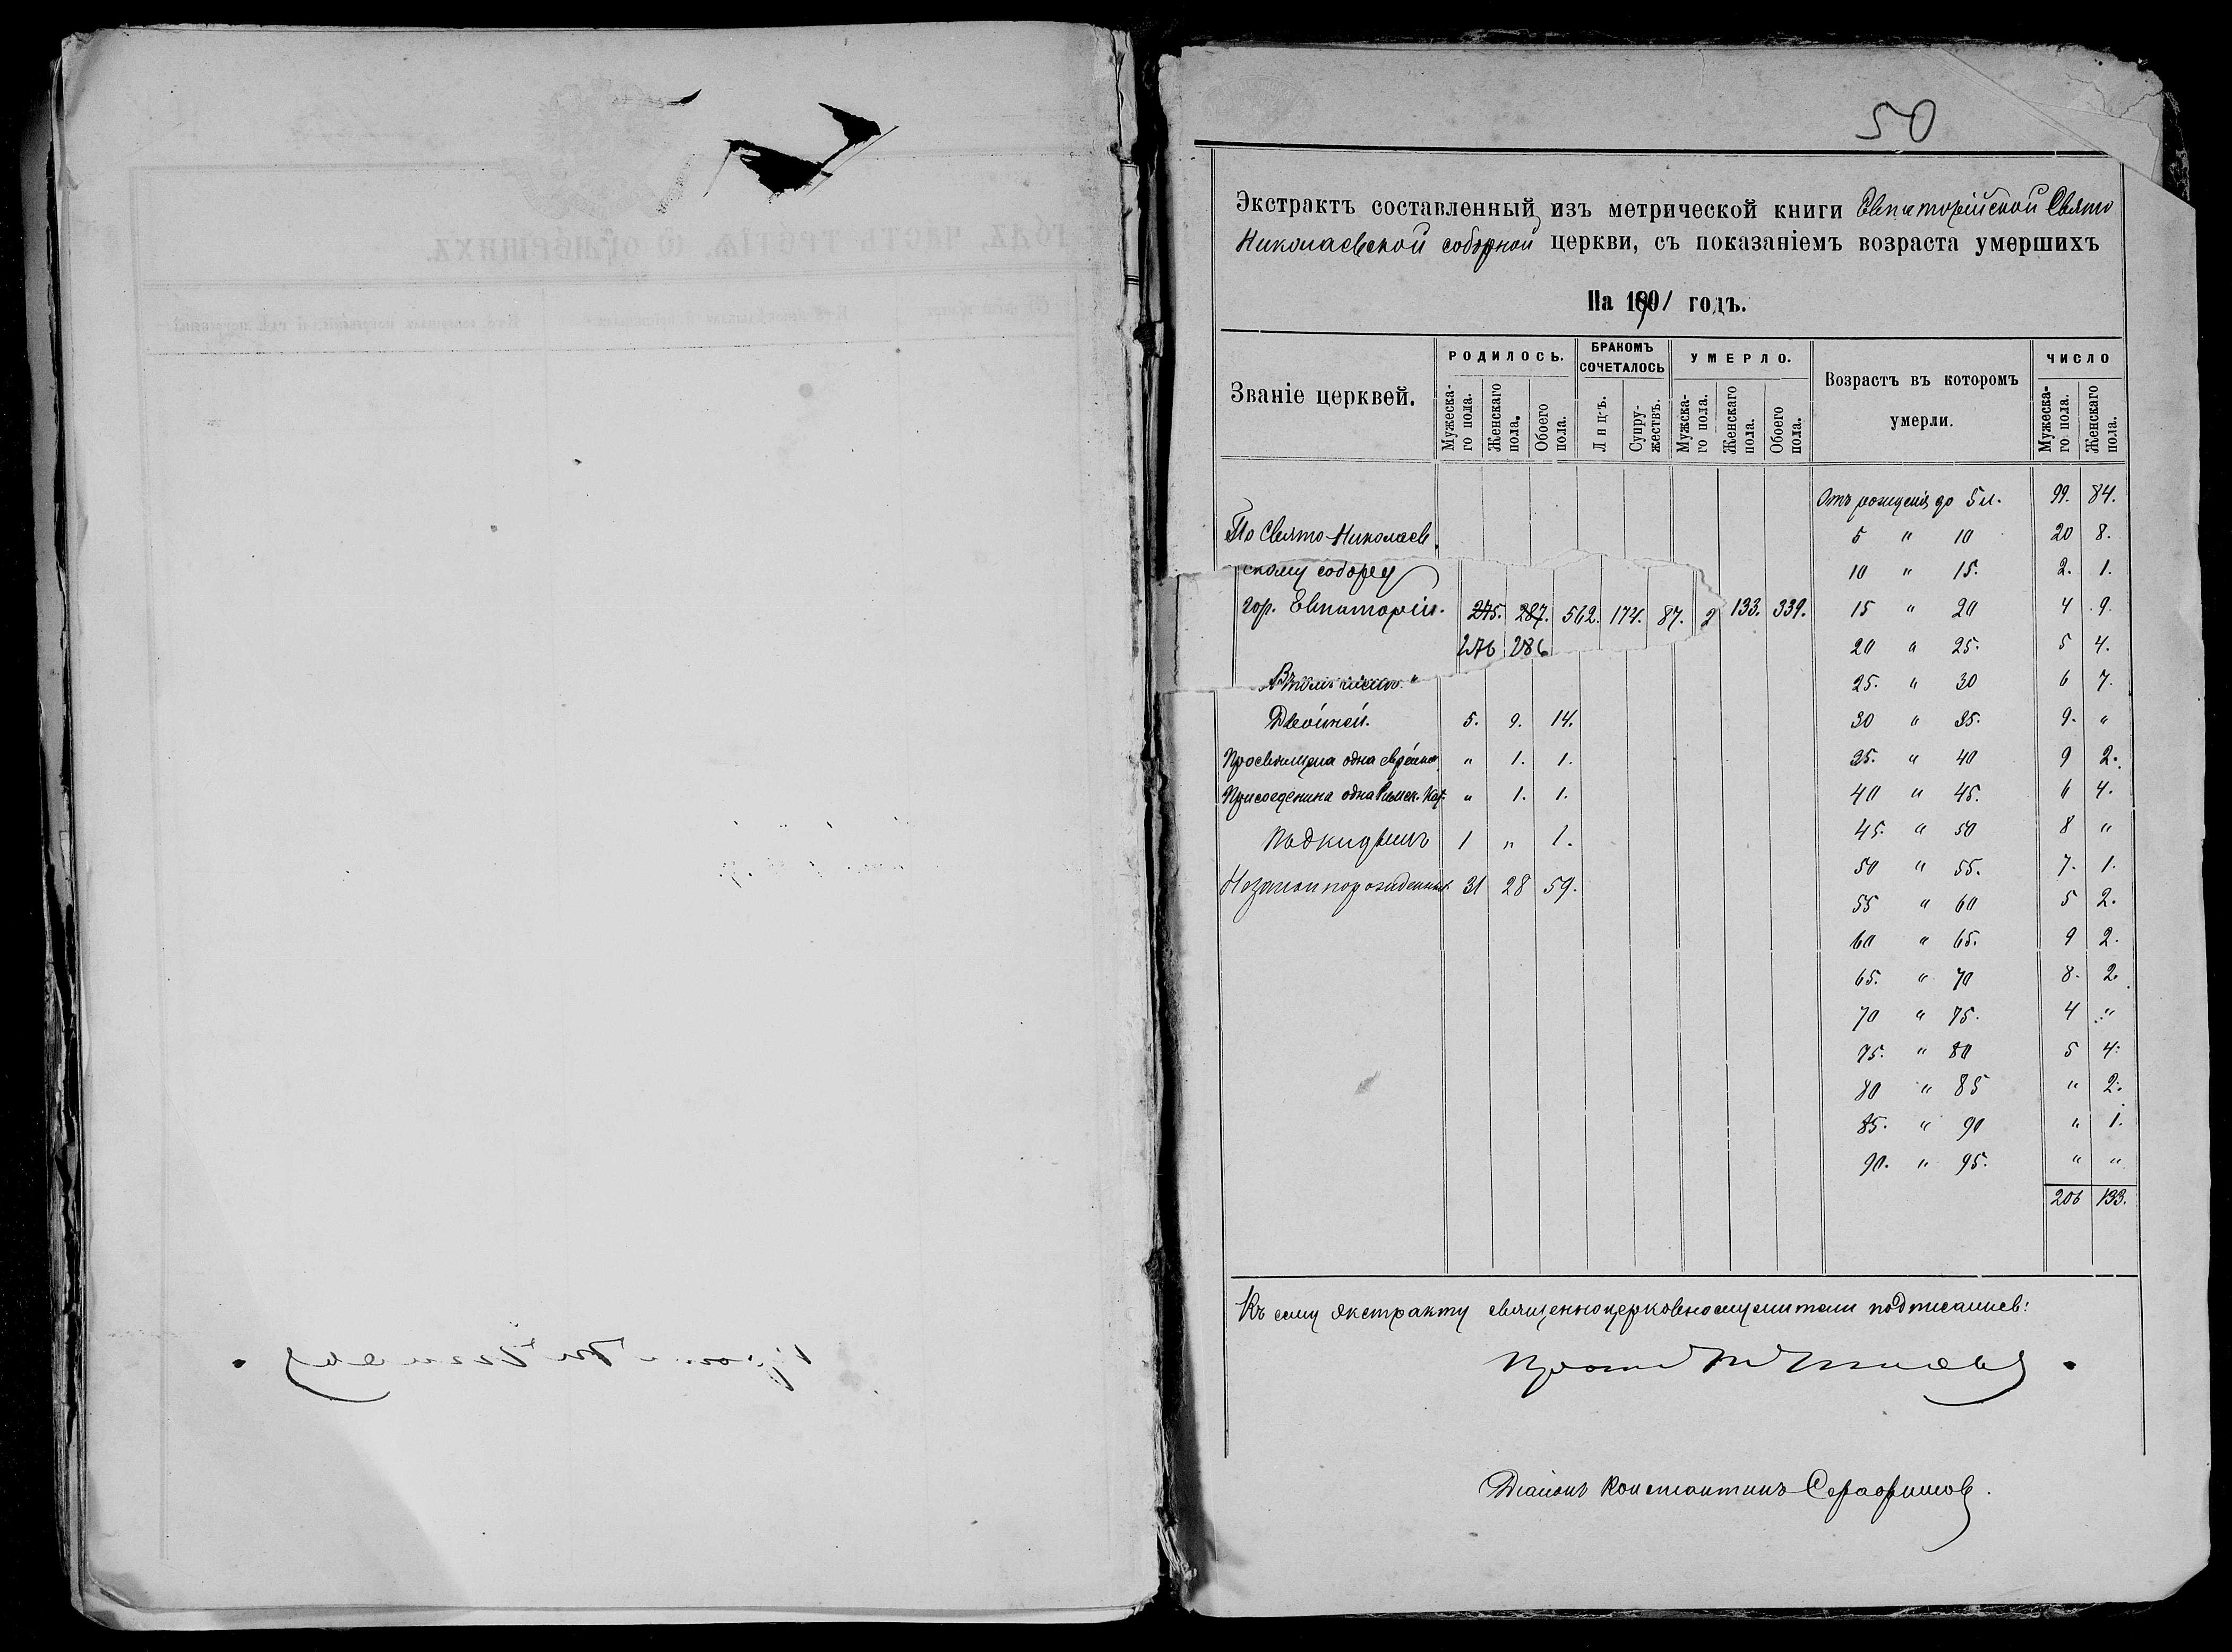 50
Экстрактъ составленный изъ метрической книги Евпаторійской Свято
Николаевской соборной церкви, съ показаніемъ возраста умершихъ
На 1901 годъ.
Званіе церквей.
РОДИЛОСЬ.
Мужеска-го пола.
Женскаго пола.
Обоего пола.
БРАКОМЪ СОЧЕТАЛОСЬ
Лицъ.
Супру-жествъ.
УМЕРЛО.
Мужска-го пола.
Женскаго пола.
Обоего пола.
Возрастъ въ которомъ умерли.
ЧИСЛО
Мужеска-го пола.
Женскаго пола.
По Свято-Николаев
скому собору
гор. Евпаторіи. 245. 287. 562. 174. 87. 2 133. 339.
276 286
Въ томъ числѣ "
Двойней. 5. 9. 14.
Просвѣщена одна еврейка " 1. 1.
Присоединена одна Римск. Кат. " 1. 1.
Подкидышъ 1 " 1.
Незаконнорожденныхъ 31 28 59.
Отъ рожденія до 5 л. 99. 84.
5 " 10 20 8.
10 " 15. 2. 1.
15 " 20 4 9.
20 " 25. 5 4.
25. " 30 6 7.
30 " 35. 9. "
35. " 40 9 2.
40 " 45. 6 4.
45. " 50 8 "
50 " 55. 7. 1.
55 " 60 5 2.
60 " 65. 9 2.
65. " 70 8. 2.
70 " 75. 4 "
75. " 80 5 4.
80 " 85 " 2.
85. " 90 " 1.
90. " 95. " "
206 133.
Къ сему экстракту священноцерковнослужители подписались:
Діаконъ Константинъ Серафимовъ.